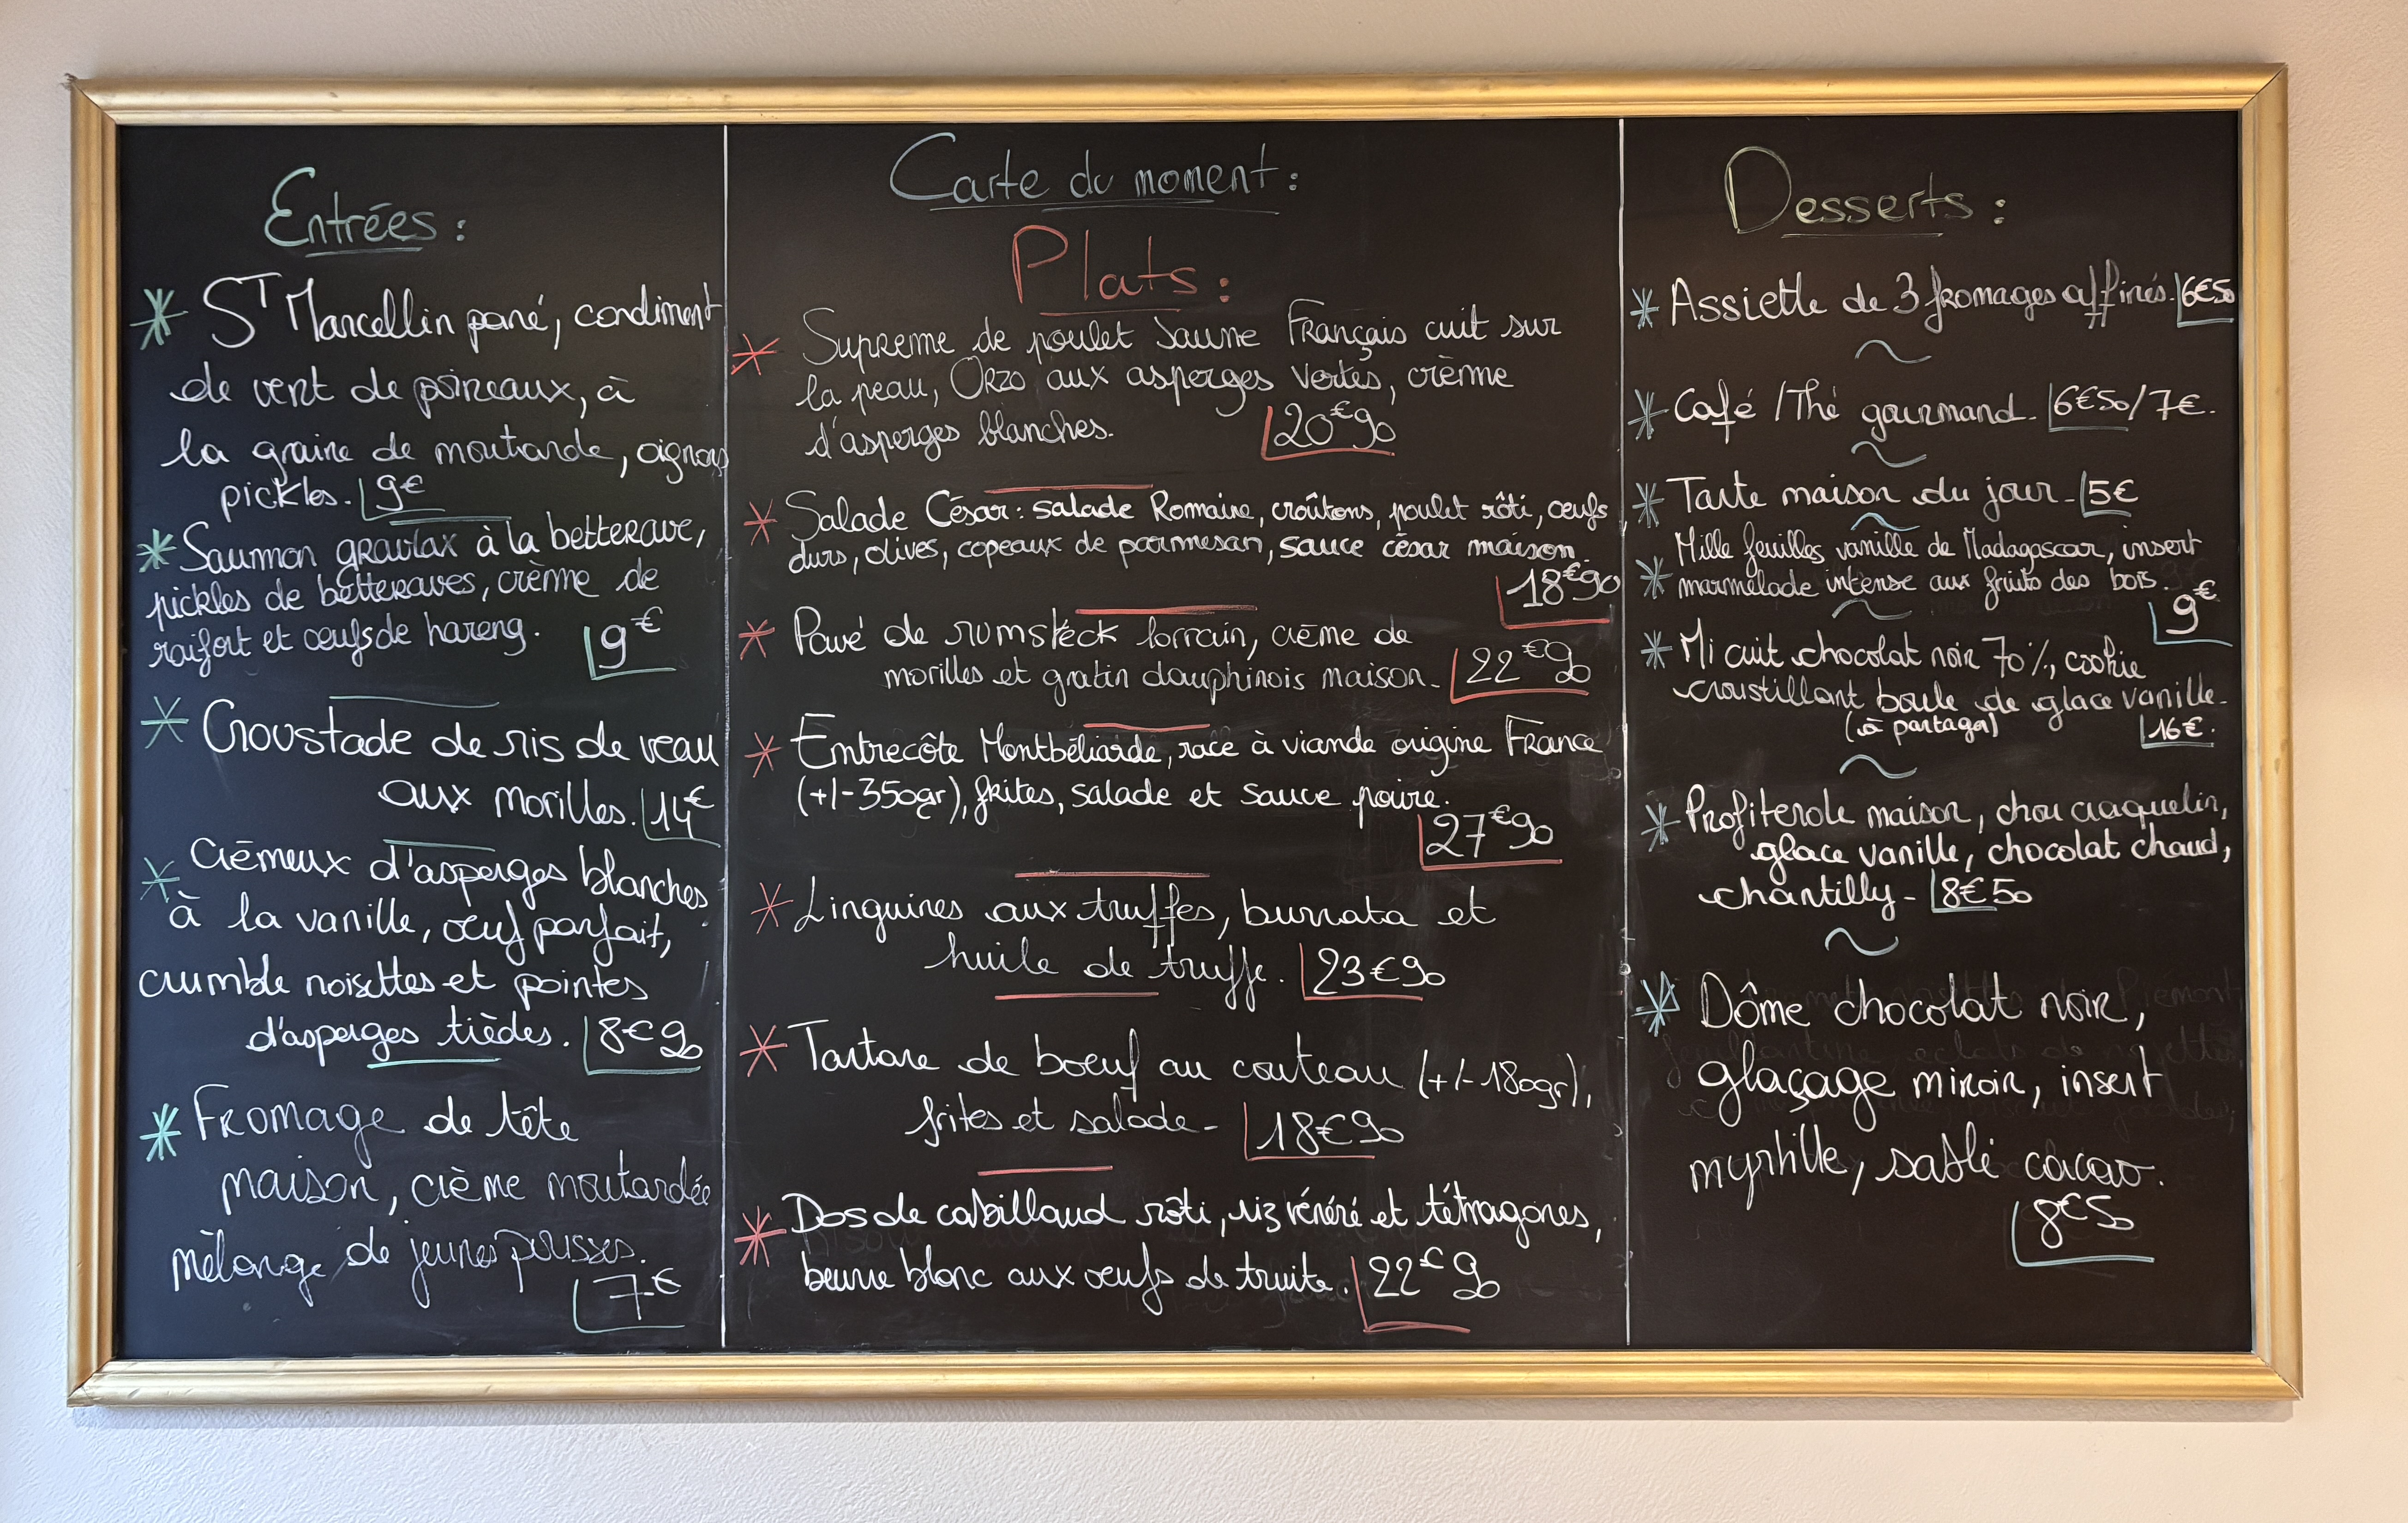 Entrées :
* S^T Marcellin pané, condiment
de vert de poireaux, à
la graine de moutarde, oignons
pickles. 9€
* Saumon gravlax à la betterave,
pickles de betteraves, crème de
raifort et œufs de hareng. 9€
* Croustade de ris de veau
aux morilles. 14€
* Crémeux d'asperges blanches
à la vanille, œuf parfait,
crumble noisettes et pointes
d'asperges tièdes. 8€90
* Fromage de tête
maison, crème moutardée
mélange de jeunes pousses.
7€
Carte du moment :
Plats :
* Supreme de poulet Jaune Français cuit sur
la peau, Orzo aux asperges vertes, crème
d'asperges blanches. 20€90
* Salade César : salade Romaine, croûtons, poulet rôti, œufs
durs, olives, copeaux de parmesan, sauce césar maison.
18€90
* Pavé de rumsteck lorrain, crème de
morilles et gratin dauphinois maison. 22€90
* Entrecôte Montbéliarde, race à viande origine France
(+/-350gr), frites, salade et sauce poivre.
27€90
* Linguines aux truffes, burrata et
huile de truffe. 23€90
* Tartare de boeuf au couteau (+/-180gr),
frites et salade - 18€90
* Dos de cabillaud rôti, riz vénéré et tétragones,
beurre blanc aux œufs de truite. 22€90
Desserts :
* Assiette de 3 fromages affinés. 6€50
* Café / Thé gourmand. 6€50/7€.
* Tarte maison du jour - 5€
Mille feuilles vanille de Madagascar, insert
* marmelade intense aux fruits des bois.
9€
* Mi cuit chocolat noir 70%, cookie
croustillant boule de glace vanille.
(à partager) 16€.
* Profiterole maison, chou craquelin,
glace vanille, chocolat chaud,
chantilly - 8€50
* Dôme chocolat noir,
glaçage miroir, insert
myrtille, sablé cacao.
8€50